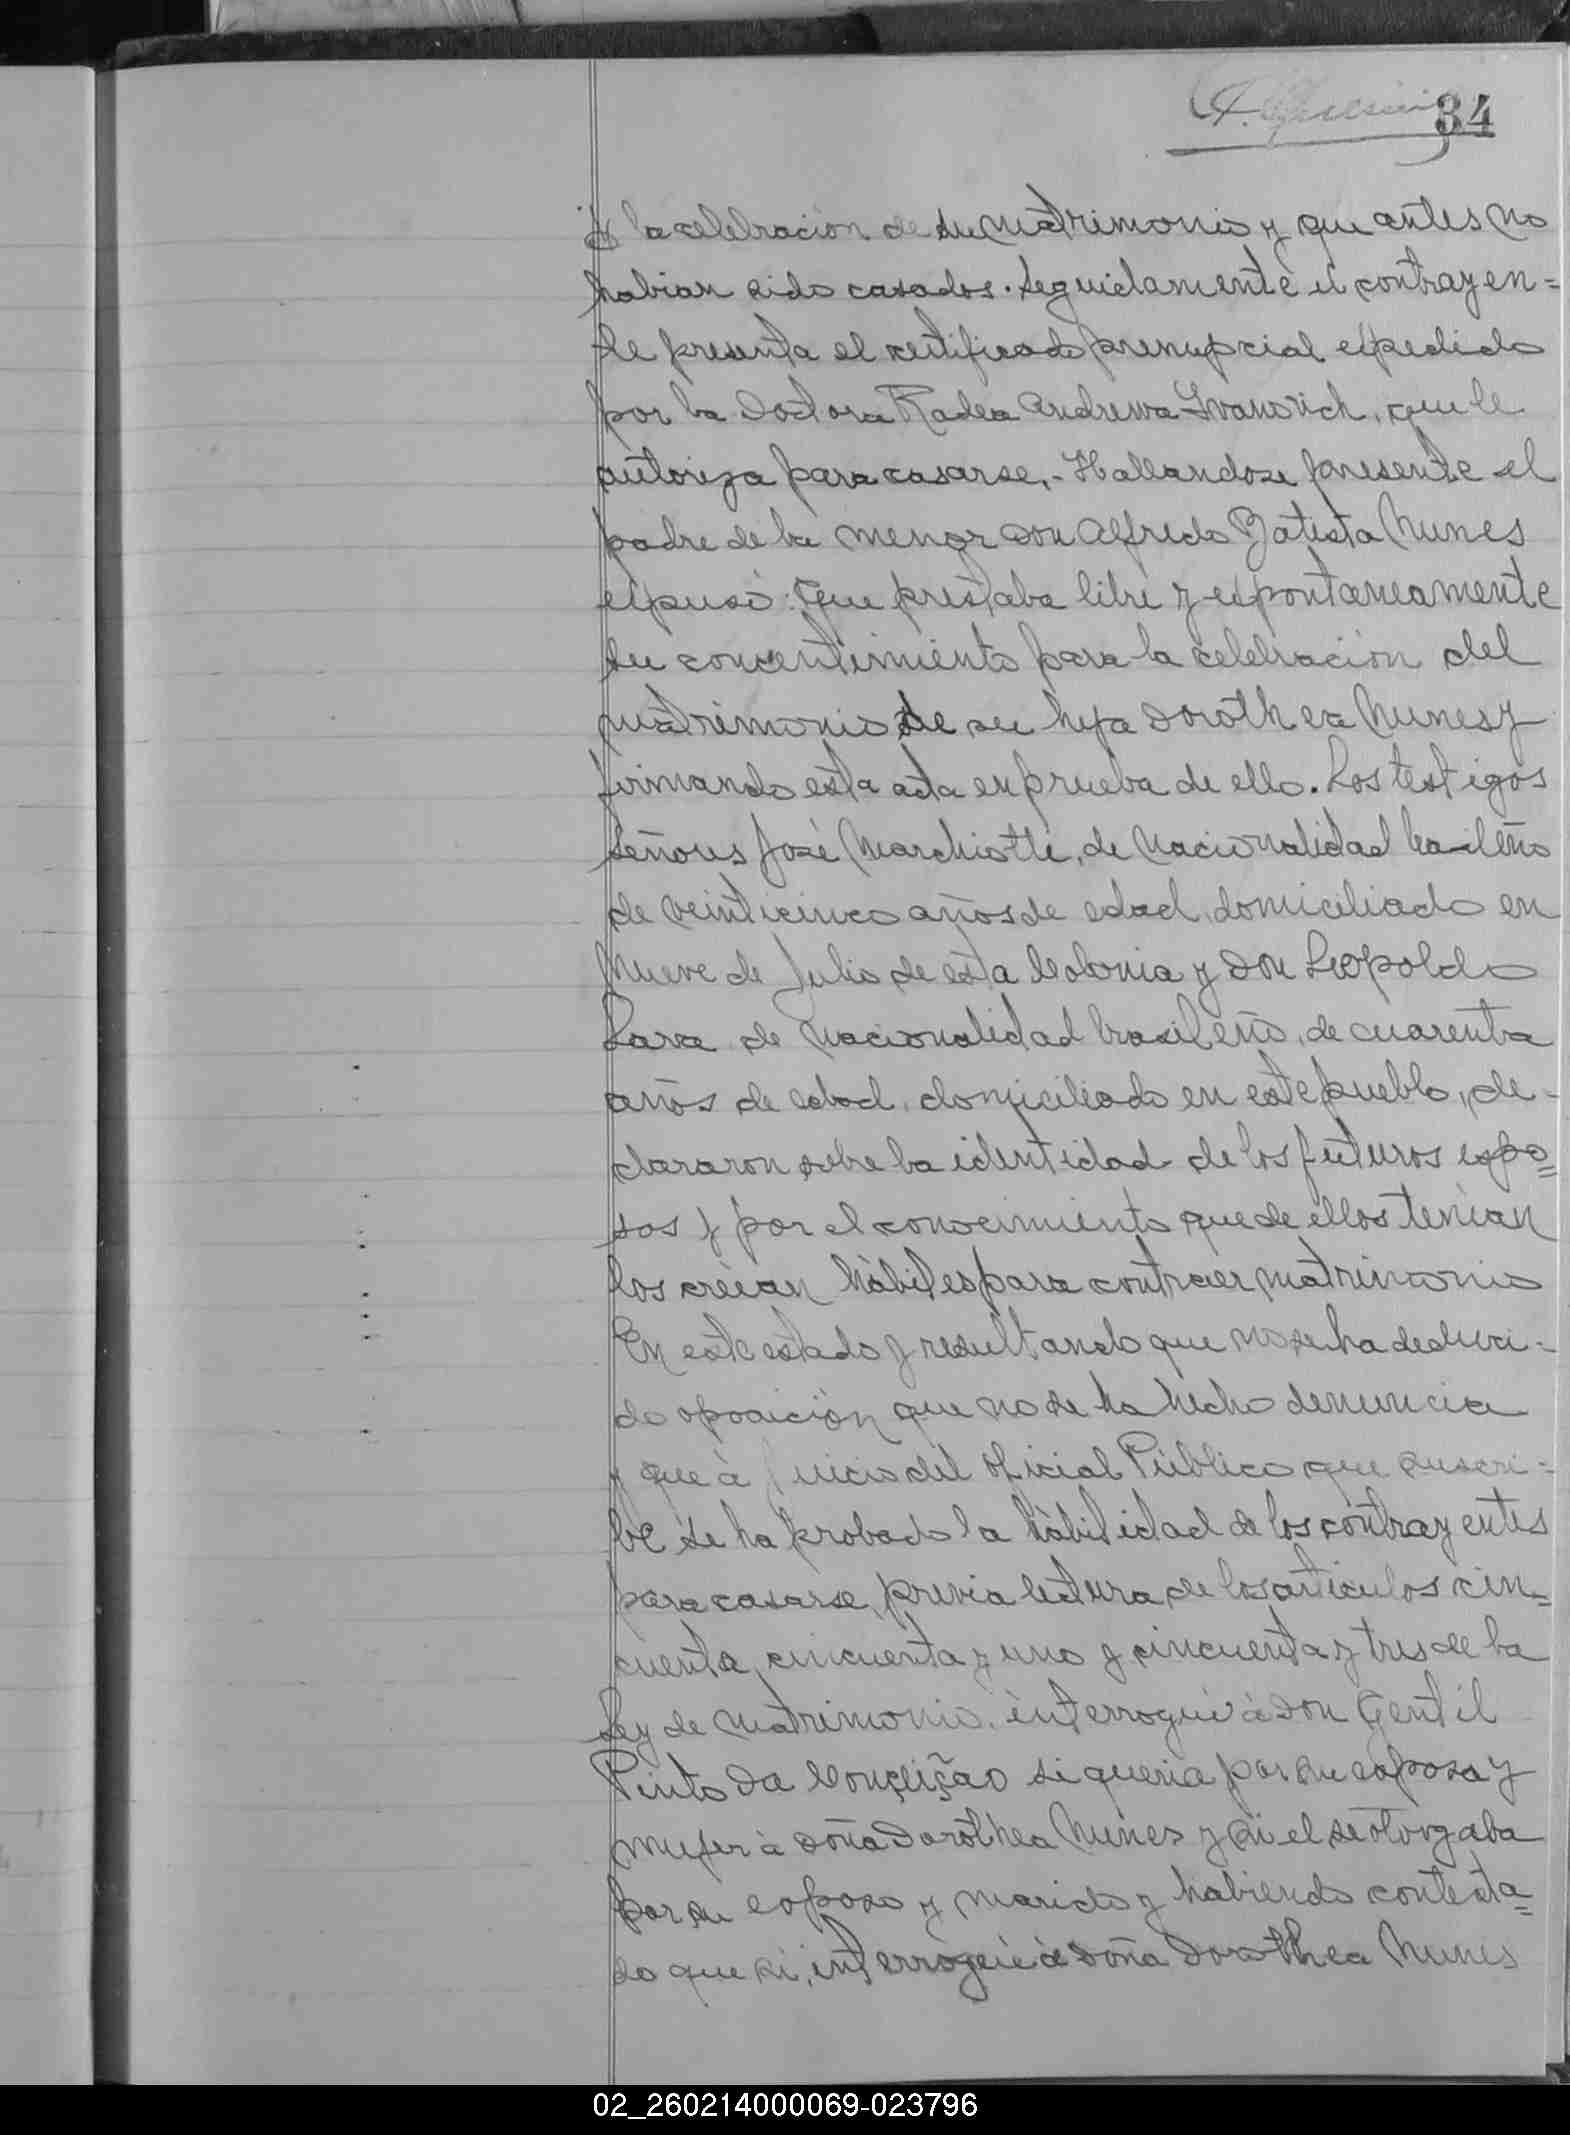 34
la celebración de su matrimonio y que antes no
habian sido casados. Seguidamente el contrayen=
te presenta el certificado prenupcial expedido
por la Doctora Radea Andrewa Ivanovich, que le
autoriza para casarse.- Hallandose presente el
padre de la menor Don Alfredo Batista Nunes
expuso: Que prestaba libre y espontaneamente
su concentimiento para la celebración del
matrimonio de su hija Dorothea Nunes y
firmando esta acta en prueba de ello. Los testigos
señores José Marchiotti, de nacionalidad brasileño
de veinticinco años de edad, domiciliado en
Nueve de Julio de esta Colonia y Don Leopoldo
Lara de nacionalidad brasileño, de cuarenta
años de edad, domiciliado en este pueblo, de-
clararon sobre la identidad de los futuros espo=
sos y por el conocimiento que de ellos tenian
los creian hàbiles para contraer matrimonio
En este estado y resultando que no se ha deduci-
do oposición que no se ha hecho denuncia
y que à juicio del Oficial Pùblico que suscri-
be se ha probado la hàbilidad de los contrayentes
para casarse, previa lectura de los articulos cin=
cuenta, cincuenta y uno y cincuenta y tres de la
Ley de matrimonio, interroguè à Don Gentil
Pinto Da Conçeição si queria por su esposa y
mujer à Doña Dorothea Nunes y si el se otorgaba
por su esposo y marido y habiendo contesta=
do que si, interroguè à Doña Dorothea Nunes
02_260214000069-023796